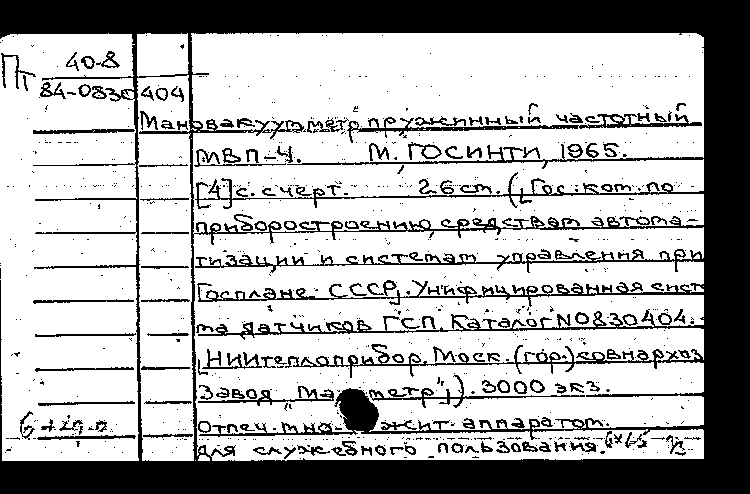 Пт 40-8
84-0830404
Мановакуумметр пружинный частотный
МВП-4. М., ГОСИНТИ, 1965.
[4]с. с черт. 26 см. ([Гос. ком. по
приборостроению, средствам автома-
тизации и системам управления при
Госплане СССР]. Унифицированная систе
ма датчиков ГСП. Каталог N0830404.
[НИИтеплоприбор. Моск. (гор.) совнархоз
Завод "Ма метр"]). 3000 экз.
Отпеч. мно жит. аппаратом.
Для служебного пользования.